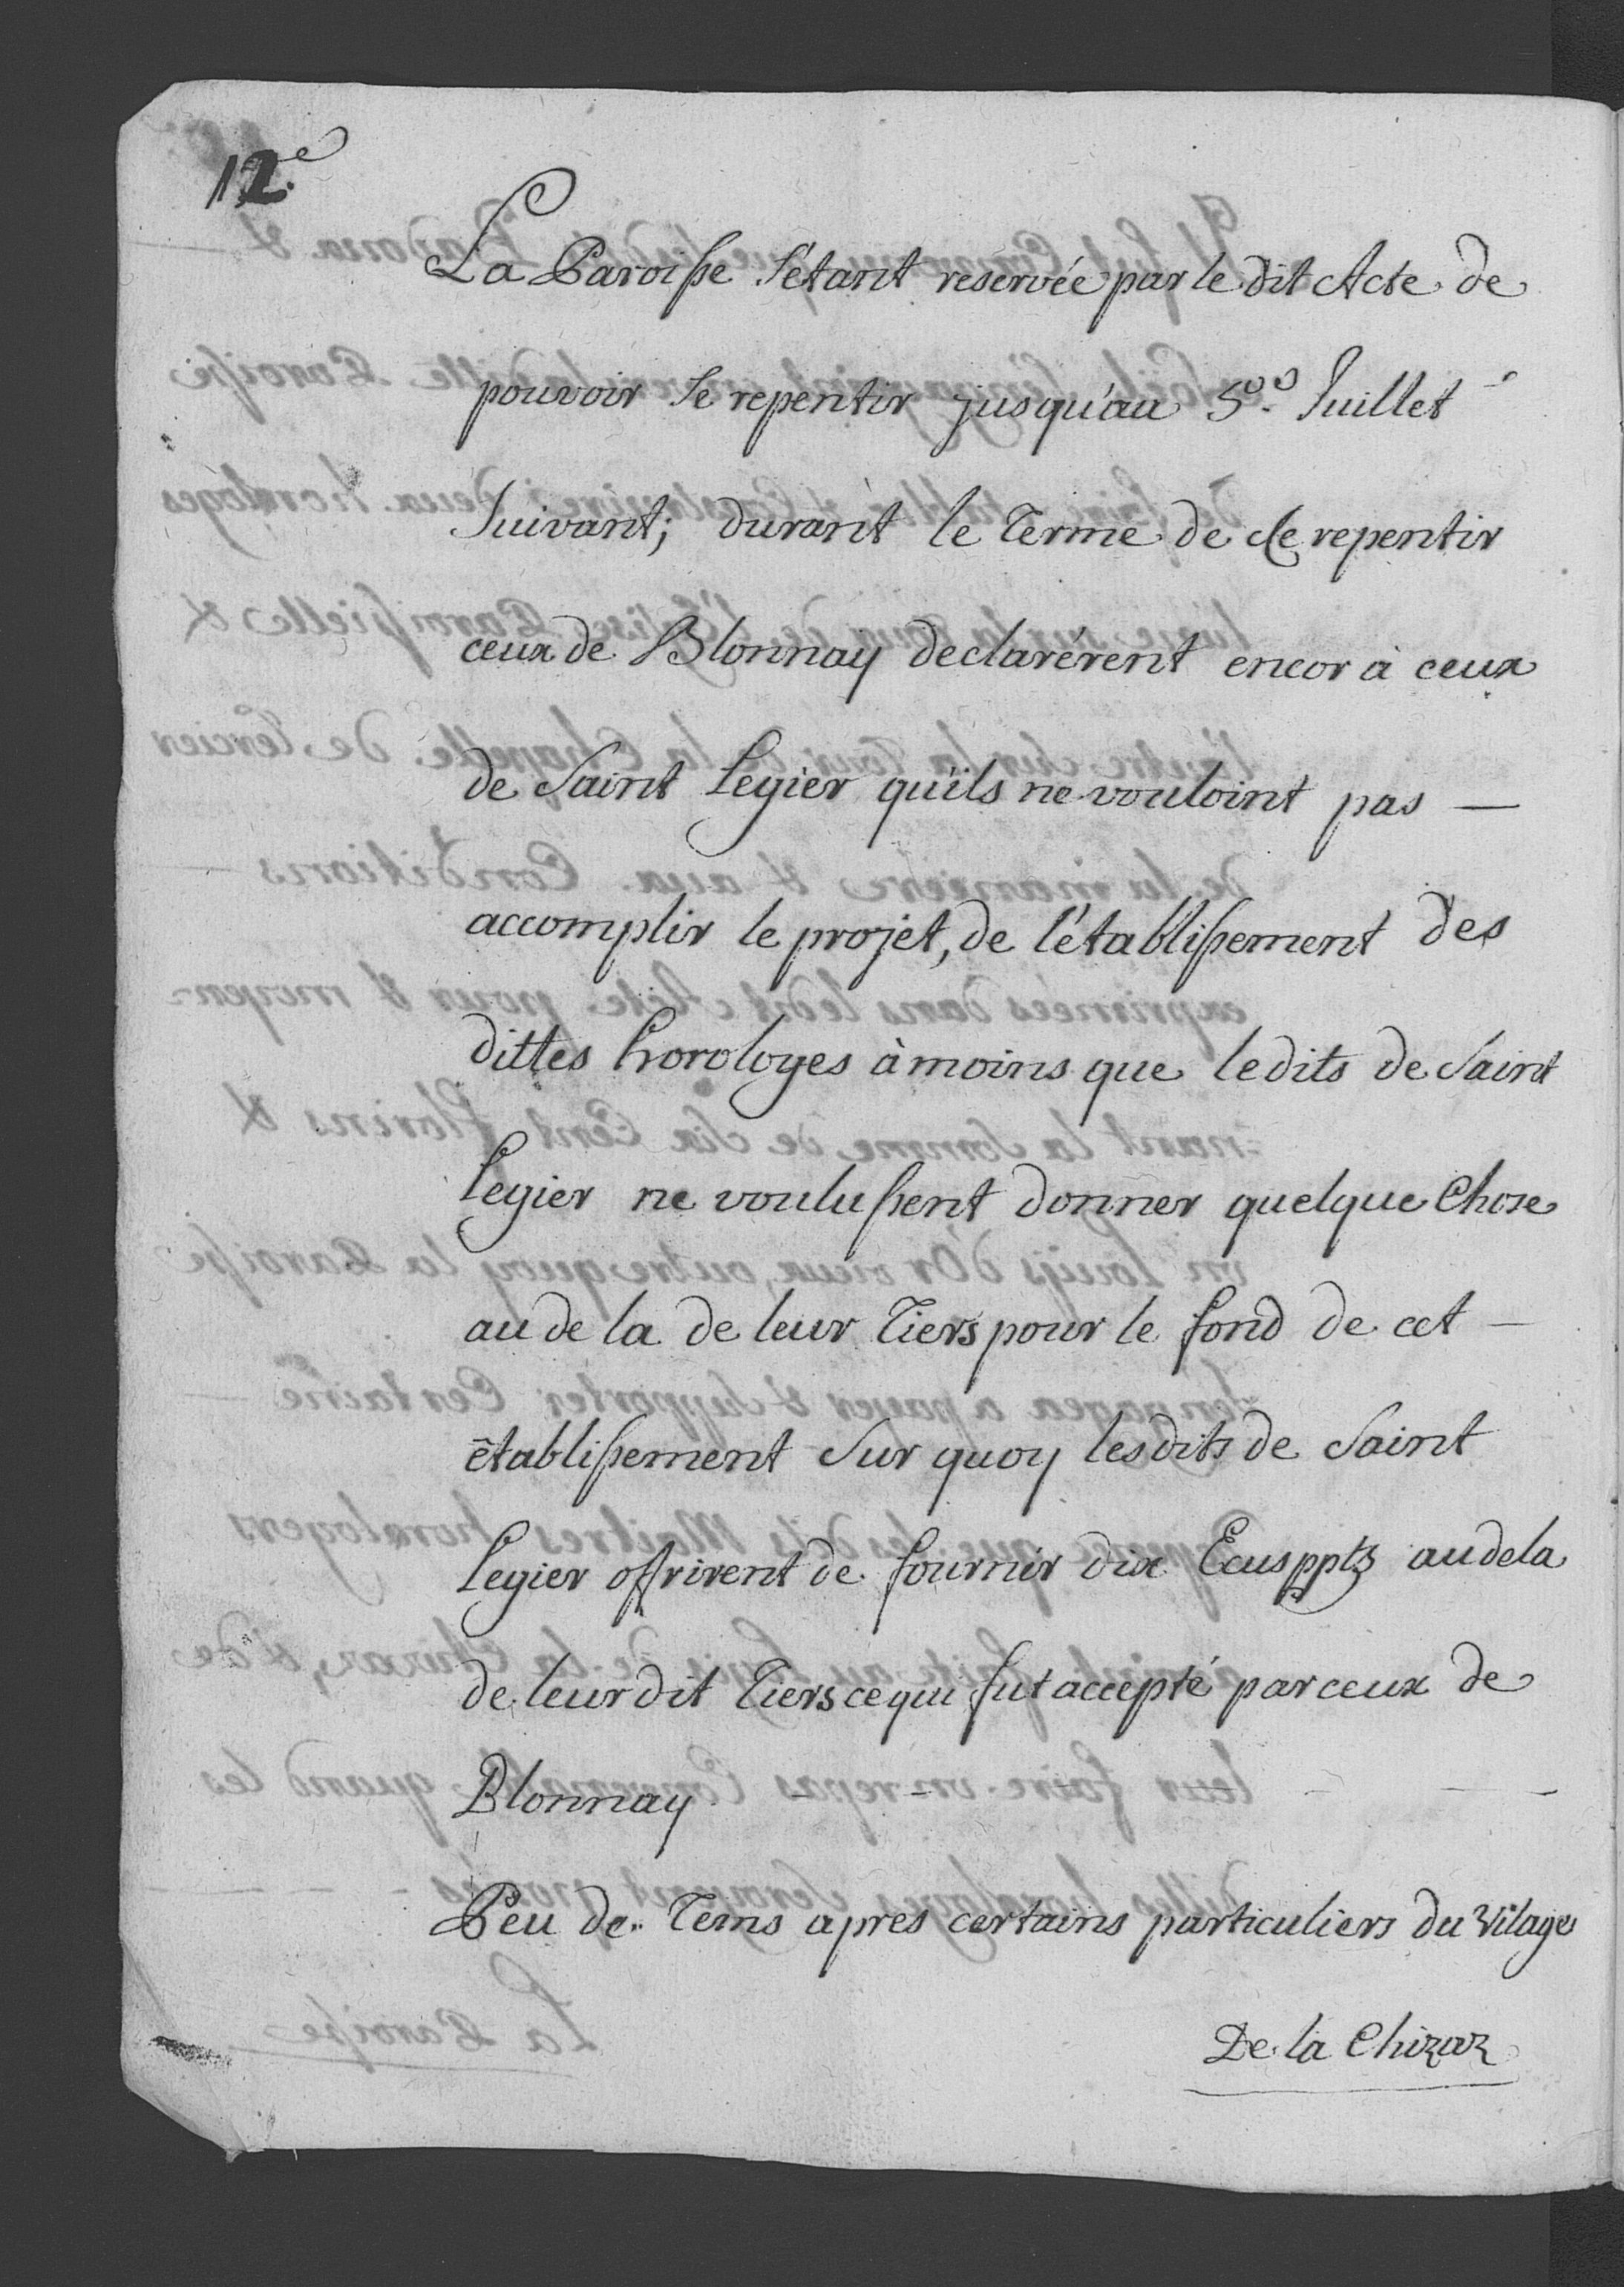 12.e
La Paroisse s'étant reservée par le dit Acte de
pouvoir se repentir jusqu'au 5.e Juillet
Suivant; durant le Terme de se repentir
ceux de Blonnay declarérent encor à ceux
de Saint Legier qu'ils ne vouloint pas —
accomplir le projet, de l'établissement des
dittes horologes à moins que ledits de Saint
Legier ne voulussent donner quelque Chose
au de la de leur Tiers pour le fond de cet —
établissement sur quoy lesdits de Saint
Legier offrirent de fournir dix Ecus pptz au dela
de leur dit Tiers ce qui fut accepté par ceux de
Blonnay. - - - - -
Peu de Tems apres certains particuliers du Vilage
De la Chizaz